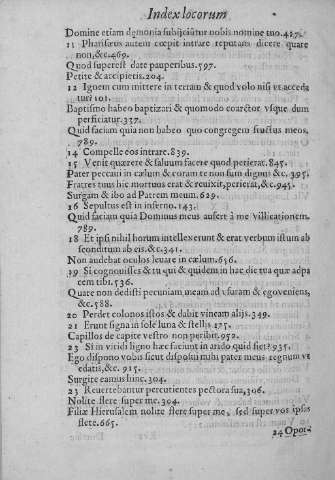 Index locorum
Domine etiam dęmonia subijciũtur nobis nomine tuo.427.
11 Pharisæus autem cœpit intra se reputans dicere quare
non,&c.469.
Quod superest date pauperibus.597.
Petite & accipietis.204.
12 Ignem cum mittere in terram & quod volo nisi vt accenda
tur? 101.
Baptismo habeo baptizari & quomodo coarctor vsque dum
perficiatur.337.
Quid faciam quia non habeo quo congregem fructus meos.
789.
14 Compelle eos intrare.839.
15 Venit quærere & saluum facere quod perierat.845.
Pater peccaui in cælum & coram te non sum dignus &c.395.
Fratres tuus hic mortuus erat & reuixit, perierat,&c.945.
Surgam & ibo ad Patrem meum.629.
16 Sepultus est in inferno.143.
Quid faciam quia Dominus meus aufert à me villicationem.
789.
18 Et ipsi nihil horum intellexerunt & erat verbum istum ab
sconditum ab eis.&c.341.
Non audebat oculos leuare in cælum.656.
19 Si cognouisses & tu qui & quidem in hac die tua quæ ad pa
cem tibi.536.
Quare non dedisti pecuniam meam ad vsuram & ego veniens,
&c.588.
20 Perdet colonos istos & dabit vineam alijs.349.
21 Erunt signa in sole luna & stellis 475.
Capillos de capite vestro non peribit.952.
23 Si in viridi ligno hæc faciunt in arido quid fiet? 935.
Ego dispono vobis sicut disposuit mihi pater meus regnum vt
edatis,&c. 915.
Surgite eamus hinc.304.
23 Reuertebantur percutientes pectora sua,306.
Nolite flere super me.304.
Filiæ Hierusalem nolite flere super me, sed super vos ipsas
flete.665.
24 Opor-